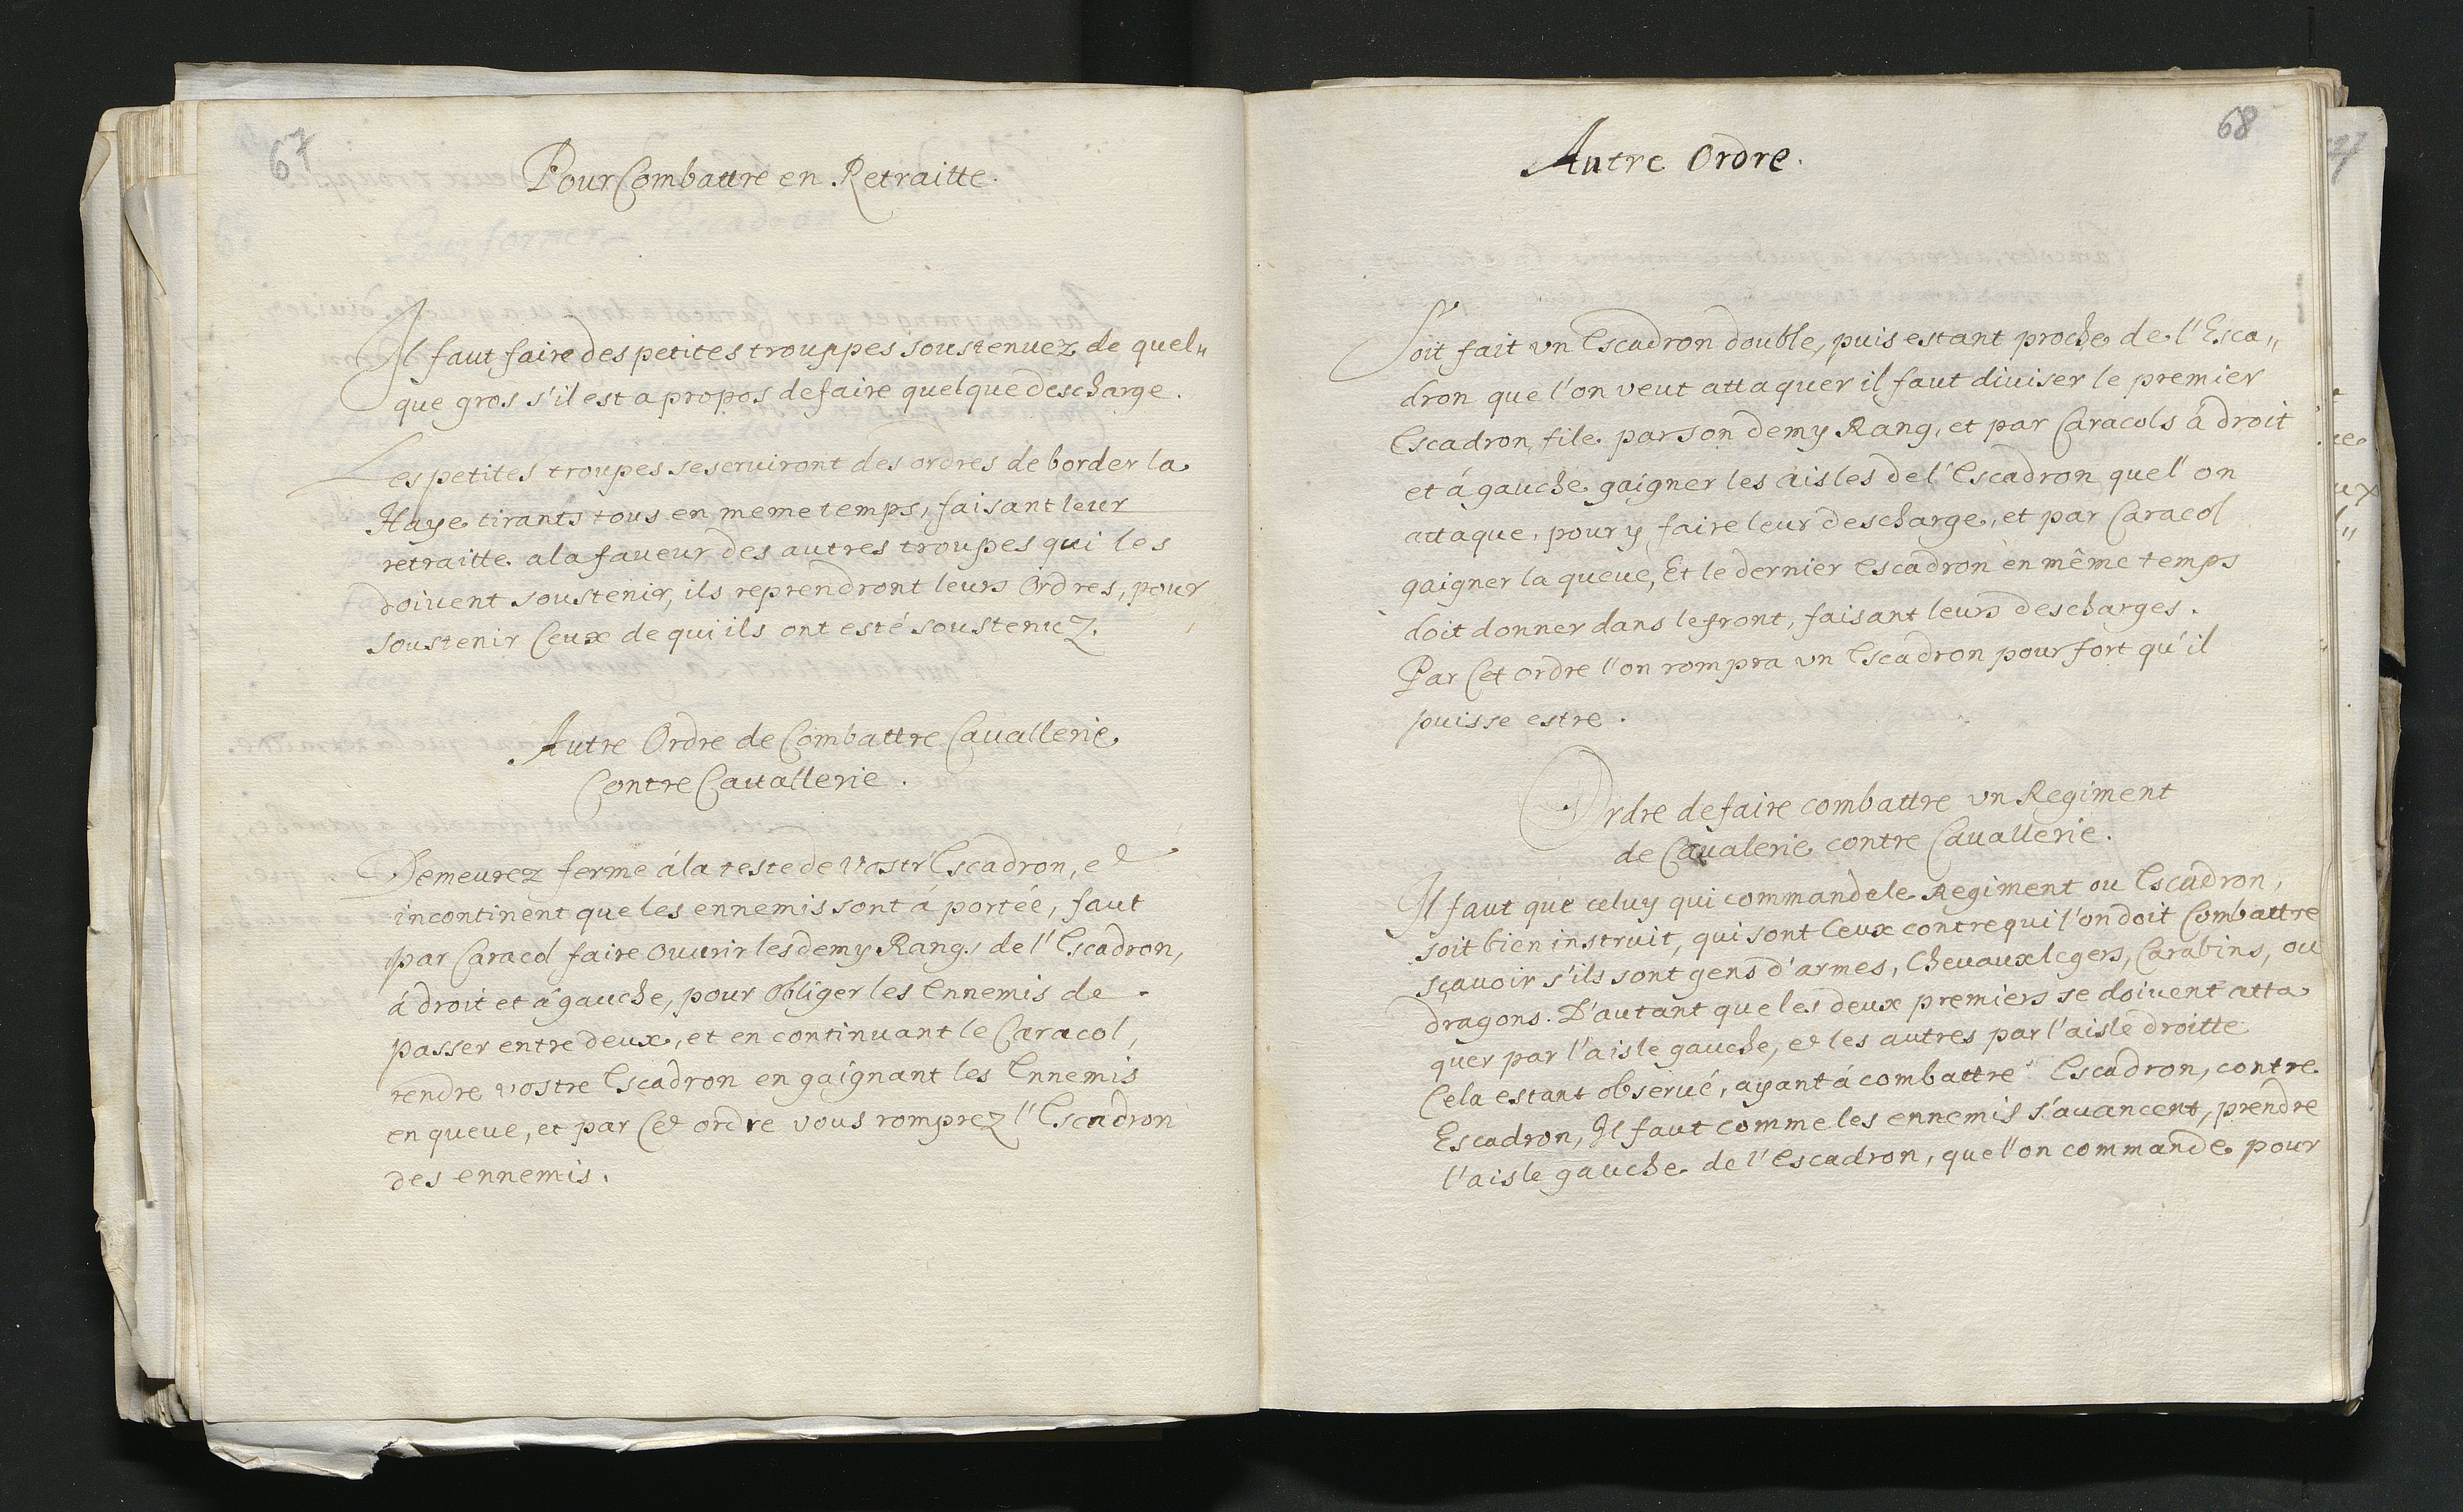 67
Pour Combattre en Retraitte.
Il faut faire des petites trouppes soustenuez de quel„
que gros s'il est a propos de faire quelque descharge.
Les petites troupes se seruiront des ordres de border la
Haye tirants tous en meme temps, faisant leur
retraitte a la faueur des autres troupes qui les
doiuent soustenir, ils reprendront leurs Ordres, pour
soustenir Ceux de qui ils ont esté soustenuz.
Autre Ordre de Combattre Cauallerie
Contre Cauallerie.
Demeurez ferme á la teste de Vostr' Escadron, et
incontinent que les ennemis sont á portée, faut
par Caracol faire Ouurir les demy Rangs de l'Escadron,
á droit et á gauche, pour Obliger les Ennemis de
passer entre deux, et en continuant le Caracol,
rendre vostre Escadron en gaignant les Ennemis
en queue, et par Cet ordre vous romprez l'Escadron
des ennemis.
68
Autre Ordre.
Soit fait vn Escadron double, puis estant proche de l'Esca„
dron que l'on veut attaquer il faut diuiser le premier
Escadron, file par son demy Rang, et par Caracols á droit
et á gauche gaigner les aisles de l'Escadron que l'on
attaque, pour y faire leur descharge, et par Caracol
gaigner la queue, Et le dernier Escadron en même temps
doit donner dans le front, faisant leurs descharges.
Par Cet ordre l'on rompra vn Escadron pour fort qu'il
puisse estre.
Ordre de faire combattre vn Regiment
de Caualerie contre Cauallerie.
Il faut que celuy qui commande le Regiment ou Escadron,
soit bien instruit, qui sont Ceux contre qui l'on doit Combattre
sçauoir s'ils sont gens d'armes, Cheuaux legers, Carabins, ou
dragons. D'autant que les deux premiers se doiuent atta
quer par l'aisle gauche, et les autres par l'aisle droitte
Cela estant obserué, ayant á combattre Escadron, contre
Escadron, Il faut comme les ennemis s'auancent, prendre
l'aisle gauche de l'Escadron, que l'on commande pour